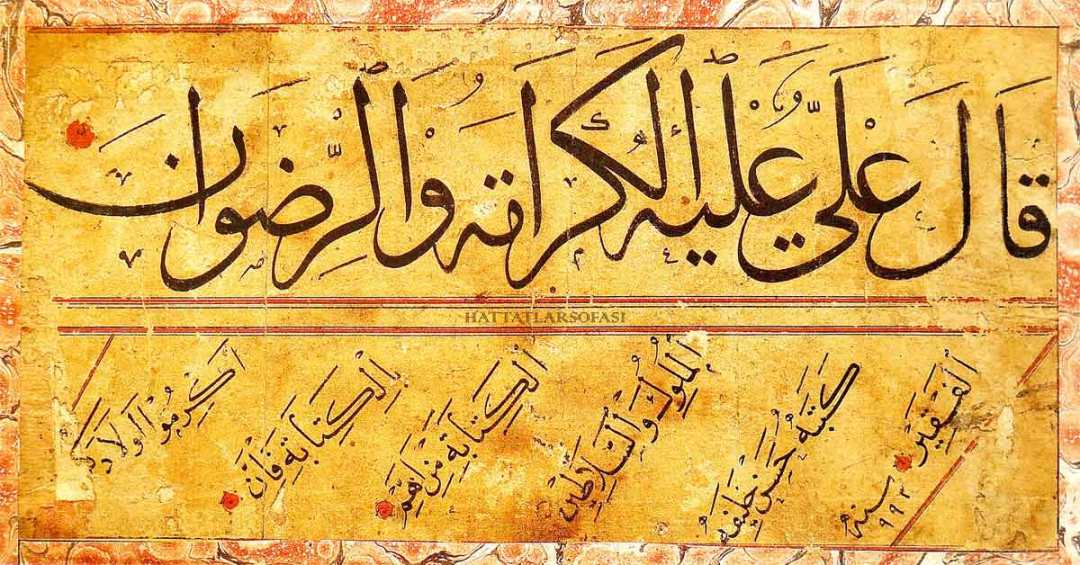 قَالَ عَلِيٌّ عَلَيْهِ الْكَرَامَةُ وَالرِّضْوَانُ
HATTATLARSOFASI
اَكْرِمُوا اَوْلَادَكُمْ
بِالْكِتَابَةِ فَاِنَّ
الْكِتَابَةَ مِنْ اَهَمِّ
الْمُلُوكِ وَالسَّلَاطِينِ
كَتَبَهُ حَسَنْ خَلِيفَه
الْفَقِير
سنه ٩٩٢